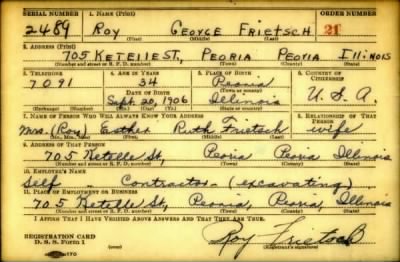 SERIAL NUMBER 1. NAME (Print) ORDER NUMBER
2489 ROY GEORGE FRIETSCH 21
(First) (Middle) (Last)
2. ADDRESS (Print)
705 KETELLE ST., PEORIA PEORIA ILLINOIS
(Number and street or R. F. D. number) (Town) (County) (State)
3. TELEPHONE 4. AGE IN YEARS 5. PLACE OF BIRTH 6. COUNTRY OF CITIZENSHIP
7091 34 Peoria
(Town or county)
DATE OF BIRTH
Sept. 20, 1906 Illinois U. S. A.
(Exchange) (Number) (Mo.) (Day) (Yr.) (State or country)
7. NAME OF PERSON WHO WILL ALWAYS KNOW YOUR ADDRESS 8. RELATIONSHIP OF THAT PERSON
Mrs. (Roy) Esther Ruth Frietsch wife
(Mr., Mrs., Miss) (First) (Middle) (Last)
9. ADDRESS OF THAT PERSON
705 Ketelle St, Peoria Peoria Illinois
(Number and street or R. F. D. number) (Town) (County) (State)
10. EMPLOYER'S NAME
Self - Contractor - (excavating)
11. PLACE OF EMPLOYMENT OR BUSINESS
705 Ketelle St, Peoria, Peoria, Illinois
(Number and street or R. F. D. number) (Town) (County) (State)
I AFFIRM THAT I HAVE VERIFIED ABOVE ANSWERS AND THAT THEY ARE TRUE.
REGISTRATION CARD
D. S. S. Form 1
Roy Frietsch
(Registrant's signature)